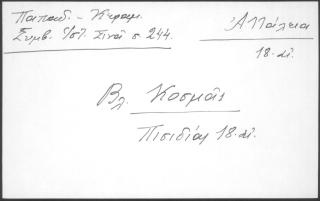 Παπαδ. - Κεραμ.
Συμβ. Ἱστ. Σινᾶ σ. 244.
Ἀττάλεια
18. αἰ.
Βλ. Κοσμᾶς
Πισιδίας 18. αἰ.